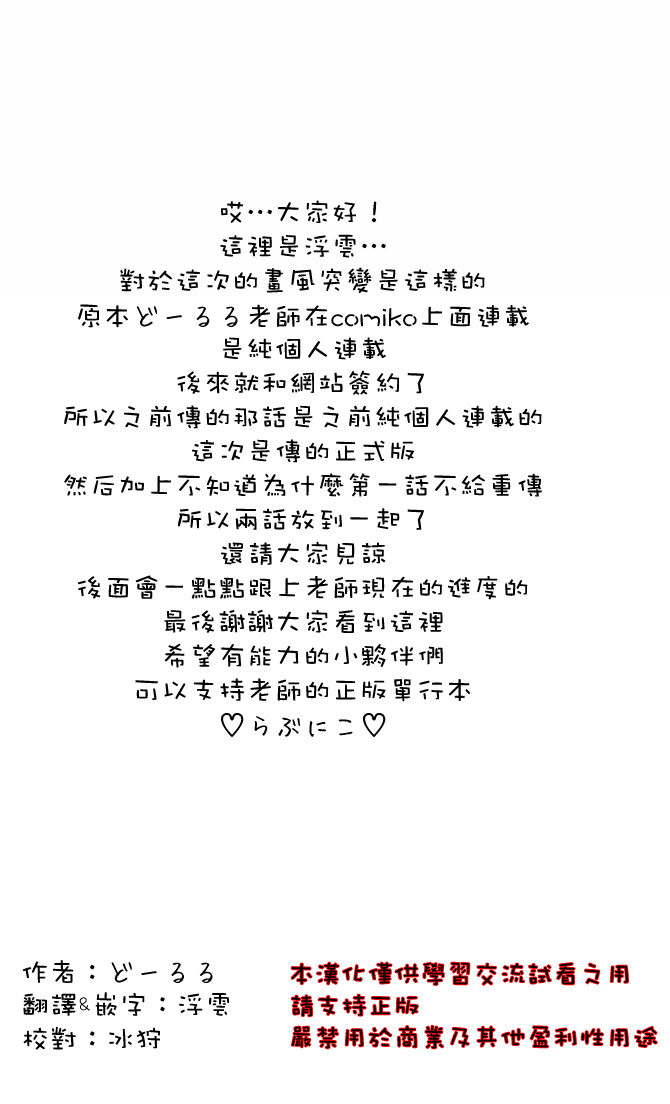 哎…大家好！
這裡是浮雲…
對於這次的畫風突變是這樣的
原本どーるる老師在comiko上面連載
是純個人連載
後來就和網站簽約了
所以之前傳的那話是之前純個人連載的
這次是傳的正式版
然后加上不知道為什麼第一話不給重傳
所以兩話放到一起了
還請大家見諒
後面會一點點跟上老師現在的進度的
最後謝謝大家看到這裡
希望有能力的小夥伴們
可以支持老師的正版單行本
♡らぶにこ♡
作者：どーるる
翻譯&嵌字：浮雲
校對：冰狩
本漢化僅供學習交流試看之用
請支持正版
嚴禁用於商業及其他盈利性用途